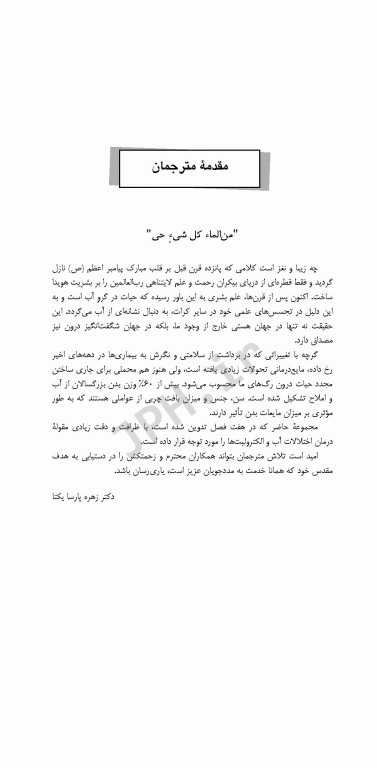 مقدمهٔ مترجمان
"من‌الماء کل شیءٍ حی"
چه زیبا و نغز است کلامی که پانزده قرن قبل بر قلب مبارک پیامبر اعظم (ص) نازل
گردید و فقط قطره‌ای از دریای بیکران رحمت و علم لایتناهی رب‌العالمین را بر بشریت هویدا
ساخت. اکنون پس از قرن‌ها، علم بشری به این باور رسیده که حیات در گرو آب است و به
این دلیل در تجسس‌های علمی خود در سایر کرات، به دنبال نشانه‌ای از آب می‌گردد. این
حقیقت نه تنها در جهان هستی خارج از وجود ما، بلکه در جهان شگفت‌انگیز درون نیز
مصداق دارد.
گرچه با تغییراتی که در برداشت از سلامتی و نگرش به بیماری‌ها در دهه‌های اخیر
رخ داده، مایع‌درمانی تحولات زیادی یافته است، ولی هنوز هم محملی برای جاری ساختن
مجدد حیات درون رگ‌های ما محسوب می‌شود. بیش از ۶۰٪ وزن بدن بزرگسالان از آب
و املاح تشکیل شده است. سن، جنس و میزان بافت چربی از عواملی هستند که به طور
مؤثری بر میزان مایعات بدن تأثیر دارند.
مجموعهٔ حاضر که در هفت فصل تدوین شده است، با ظرافت و دقت زیادی مقولهٔ
درمان اختلالات آب و الکترولیت‌ها را مورد توجه قرار داده است.
امید است تلاش مترجمان بتواند همکاران محترم و زحمتکش را در دستیابی به هدف
مقدس خود که همانا خدمت به مددجویان عزیز است، یاری‌رسان باشد.
دکتر زهره پارسا یکتا
JPH.ir